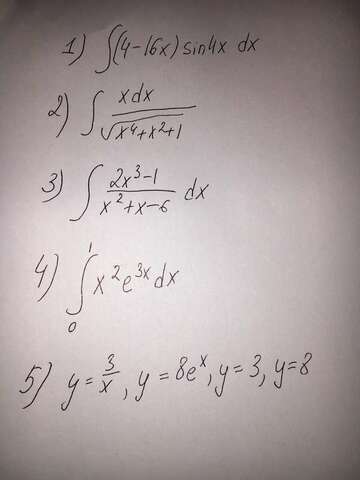 1) ∫(4-16x) sin4x dx
2) ∫ xdx / √(x⁴+x²+1)
3) ∫ (2x³-1) / (x²+x-6) dx
4) ∫₀¹ x²e³ˣdx
5) y=3/x, y=8eˣ, y=3, y=8